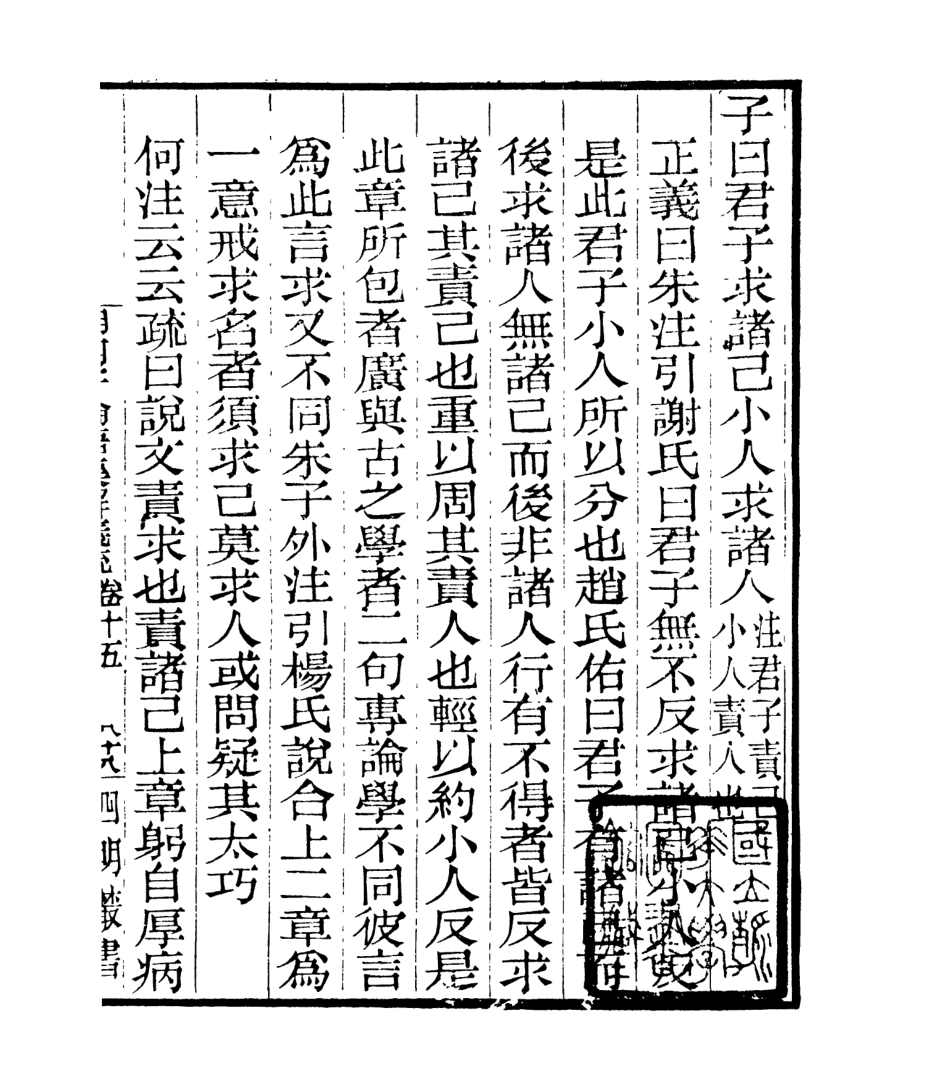 子曰君子求諸己小人求諸人
注君子責己
小人責人也
正義曰朱注引謝氏曰君子無不反求諸己小人反
是此君子小人所以分也趙氏佑曰君子有諸己而
後求諸人無諸己而後非諸人行有不得者皆反求
諸己其責己也重以周其責人也輕以約小人反是
此章所包者廣與古之學者二句專論學不同彼言
爲此言求又不同朱子外注引楊氏說合上二章爲
一意戒求名者須求己莫求人或問疑其太巧
何注云云疏曰說文責求也責諸己上章躬自厚病
卷十五
四明叢書